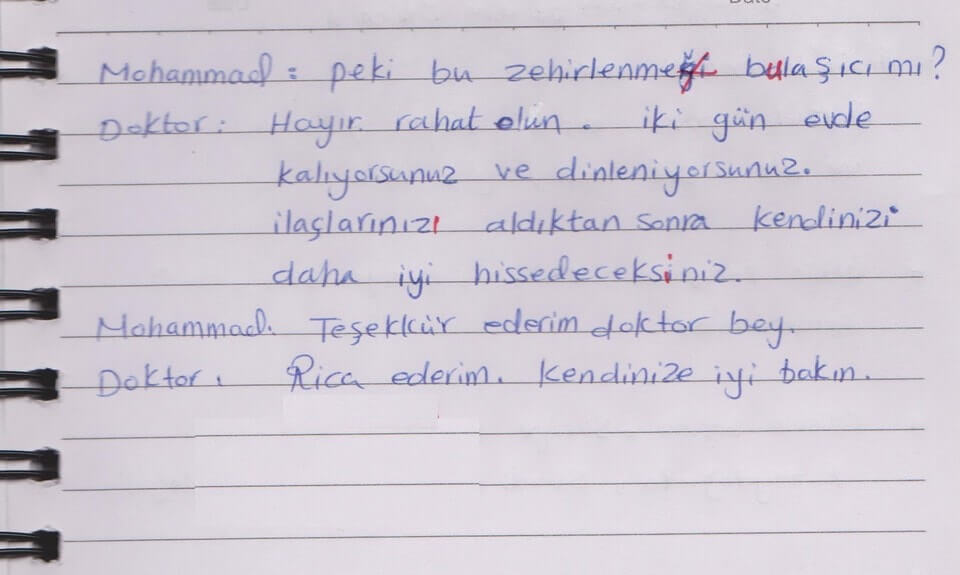 Mohammad : peki bu zehirlenme bulaşıcı mı?
Doktor : Hayır rahat olun. iki gün evde
kalıyorsunuz ve dinleniyorsunuz.
ilaçlarınızı aldıktan sonra kendinizi
daha iyi hissedeceksiniz.
Mohammad. Teşekkür ederim doktor bey.
Doktor. Rica ederim. Kendinize iyi bakın.